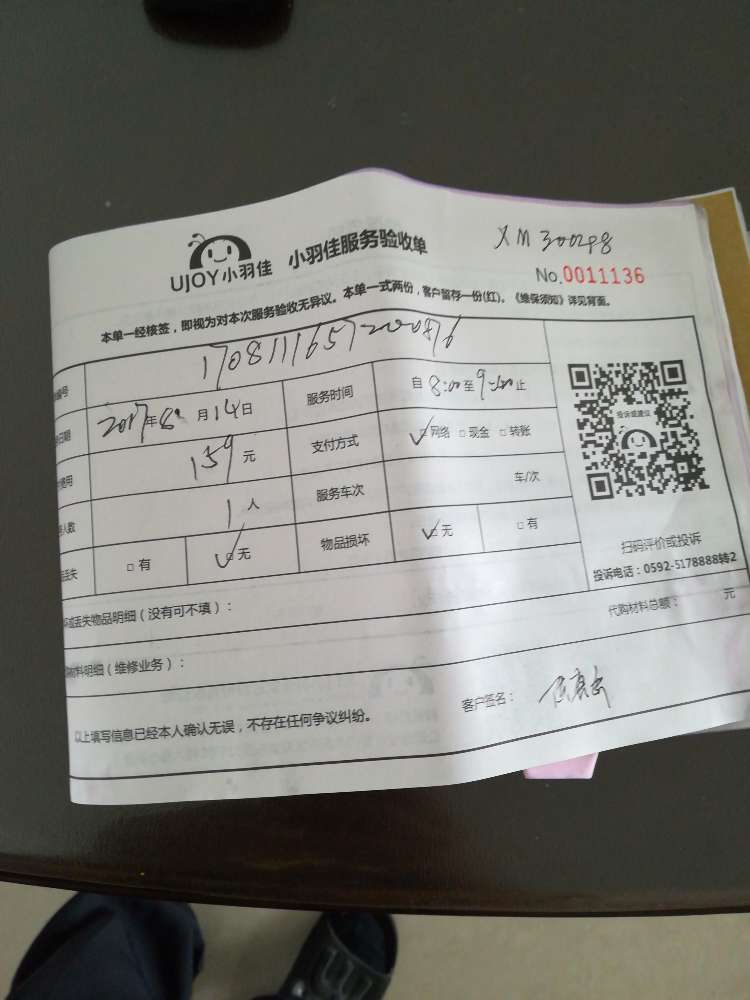 UJOY小羽佳 小羽佳服务验收单
XM300298
No.0011136
本单一经核签，即视为对本次服务验收无异议。本单一式两份，客户留存一份(红)。《维保须知》详见背面。
编号
日期 2017年8月14日 服务时间 自8:00至9:00止
费用 159元 支付方式 ✓□网络 □现金 □转账
人数 1人 服务车次 车/次
丢失 □有 ✓□无 物品损坏 ✓□无 □有
投诉或建议
扫码评价或投诉
投诉电话：0592-5178888转2
坏或丢失物品明细（没有可不填）：
代购材料总额： 元
材料明细（维修业务）：
以上填写信息已经本人确认无误，不存在任何争议纠纷。
客户签名：